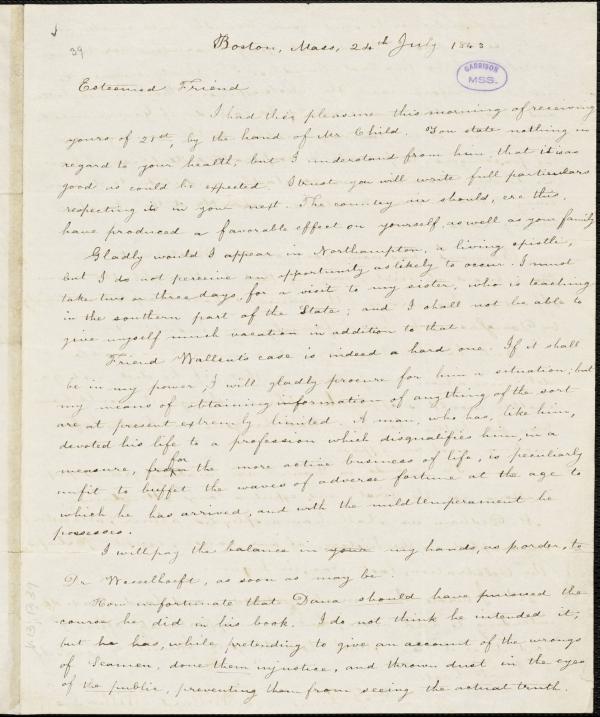 39
Boston, Mass, 24th July 1843
GARRISON
MSS.
Esteemed Friend
I had this pleasure this morning of receiving
yours of 21st, by the hand of Mr Child. You state nothing in
regard to your health; but I understand from him, that it is as
good as could be expected. I trust you will write full particulars
respecting it in your next. The country air should, ere this,
have produced a favorable effect on yourself, as well as your family
Gladly would I appear in Northampton, a living epistle,
but I do not perceive an opportunity as likely to occur. I must
take two or three days, for a visit to my sister, who is teaching
in the southern part of the State; and I shall not be able to
give myself much vacation in addition to that.
Friend Wallcut's case is indeed a hard one. If it shall
be in my power, I will gladly procure for him a situation; but
my means of obtaining information of anything of the sort
are at present extremely limited. A man, who has, like him,
devoted his life to a profession which disqualifies him, in a
measure, for the more active business of life, is peculiarly
unfit to buffet the waves of adverse fortune at the age to
which he has arrived, and with the mild temperament he
possesses.
I will pay the balance in your my hands, as p order, to
Dr Wesselhoeft, as soon as may be.
How unfortunate that Dana should have pursued the
course he did in his book. I do not think he intended it;
but he has, while pretending to give an account of the wrongs
of Seamen, done them injustice, and thrown dust in the eyes
of the public, preventing them from seeing the actual truth.